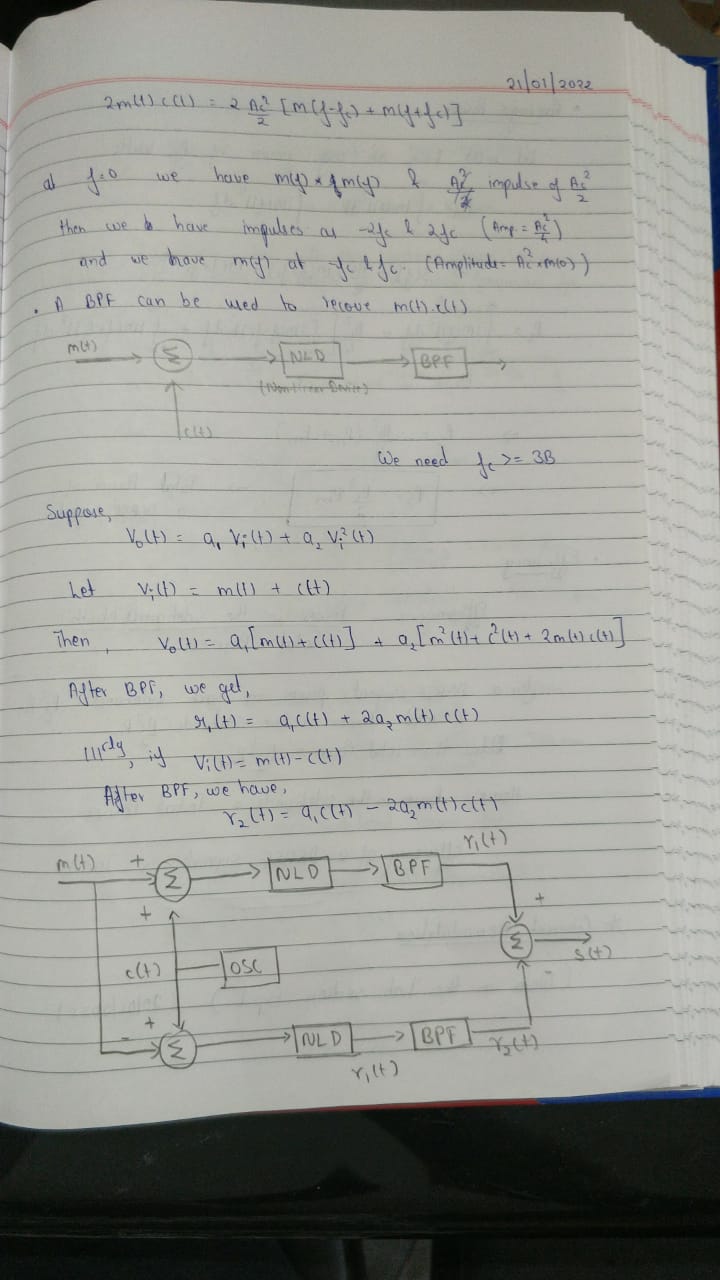 21/01/2022
2m(t) c(t) = 2 Ac²/2 [m(f-fc) + m(f+fc)]
at f=0 we have m(f) * m(f) & impulse of Ac²/2
then we have impulses at -2fc & 2fc (Amp = Ac²/4)
and we have m(f) at -fc & fc. (Amplitude = Ac² × m(0))
. A BPF can be used to recove m(t).c(t)
m(t) Σ NLD BPF
(Non linear Device)
c(t)
We need fc >= 3B
Suppose,
V₀(t) = a₁ Vᵢ(t) + a₂ Vᵢ²(t)
Let Vᵢ(t) = m(t) + c(t)
Then, V₀(t) = a₁[m(t) + c(t)] + a₂[m²(t) + c²(t) + 2m(t)c(t)]
After BPF, we get,
r₁(t) = a₁c(t) + 2a₂m(t) c(t)
|||rdy, if Vi(t) = m(t) - c(t)
After BPF, we have,
r₂(t) = a₁c(t) - 2a₂m(t)c(t)
r₁(t)
m(t) + Σ NLD BPF
+ +
Σ s(t)
c(t) OSC
+
- Σ NLD BPF r₂(t)
r₁(t)